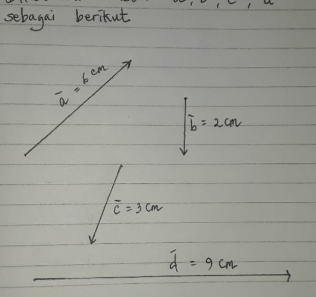 sebagai berikut
ā = 6 cm
b̄ = 2 cm
c̄ = 3 cm
d̄ = 9 cm